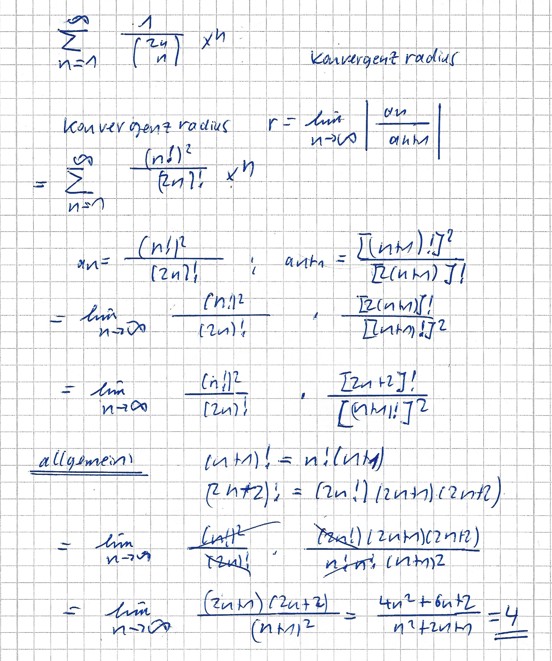 ∞
∑ 1/(2n n) xⁿ
n=1
Konvergenzradius
Konvergenzradius r = lim n→∞ | an / an+1 |
= ∑ n=1 ∞ (n!)² / (2n)! · xⁿ
an = (n!)² / (2n)! ; an+1 = [(n+1)!]² / [2(n+1)]!
= lim n→∞ (n!)² / (2n)! · [2(n+1)]! / [(n+1)!]²
= lim n→∞ (n!)² / (2n)! · [2n+2]! / [(n+1)!]²
allgemein: (n+1)! = n!(n+1)
(2n+2)! = (2n!)(2n+1)(2n+2)
= lim n→∞ (n!)² / (2n)! · (2n!)(2n+1)(2n+2) / n!·n! (n+1)²
= lim n→∞ (2n+1)(2n+2) / (n+1)² = 4n²+6n+2 / n²+2n+1 = 4